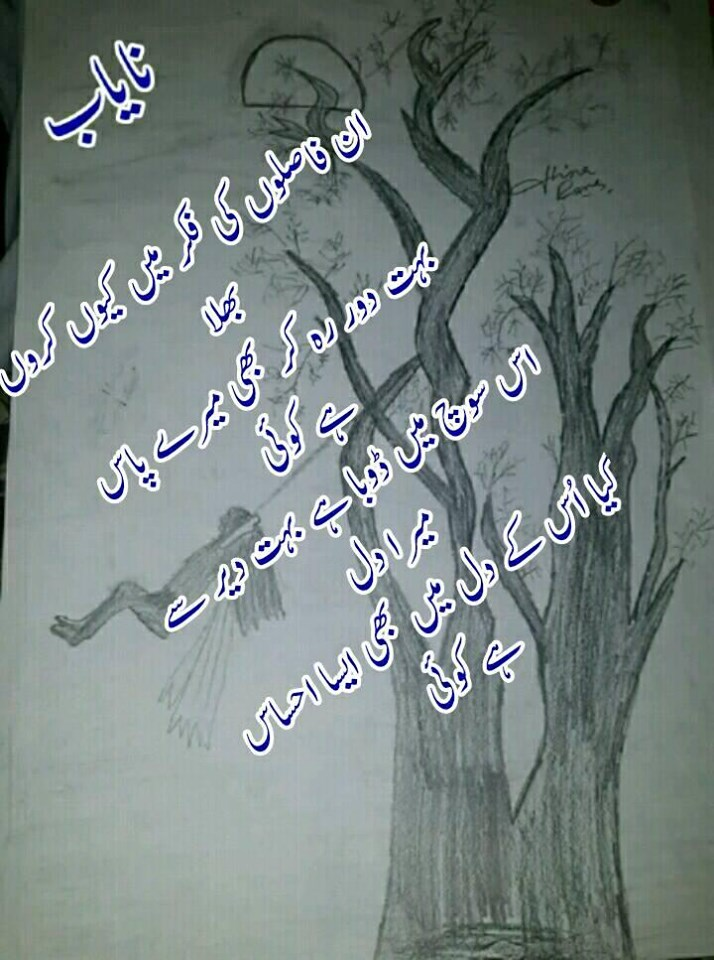 نایاب
ان فاصلوں کی فکر میں کیوں کروں
بھلا
بہت دور رہ کر بھی میرے پاس
ہے کوئی
اس سوچ میں ڈوبا ہے بہت دیر سے
میرا دل
کیا اُس کے دل میں بھی ایسا احساس
ہے کوئی